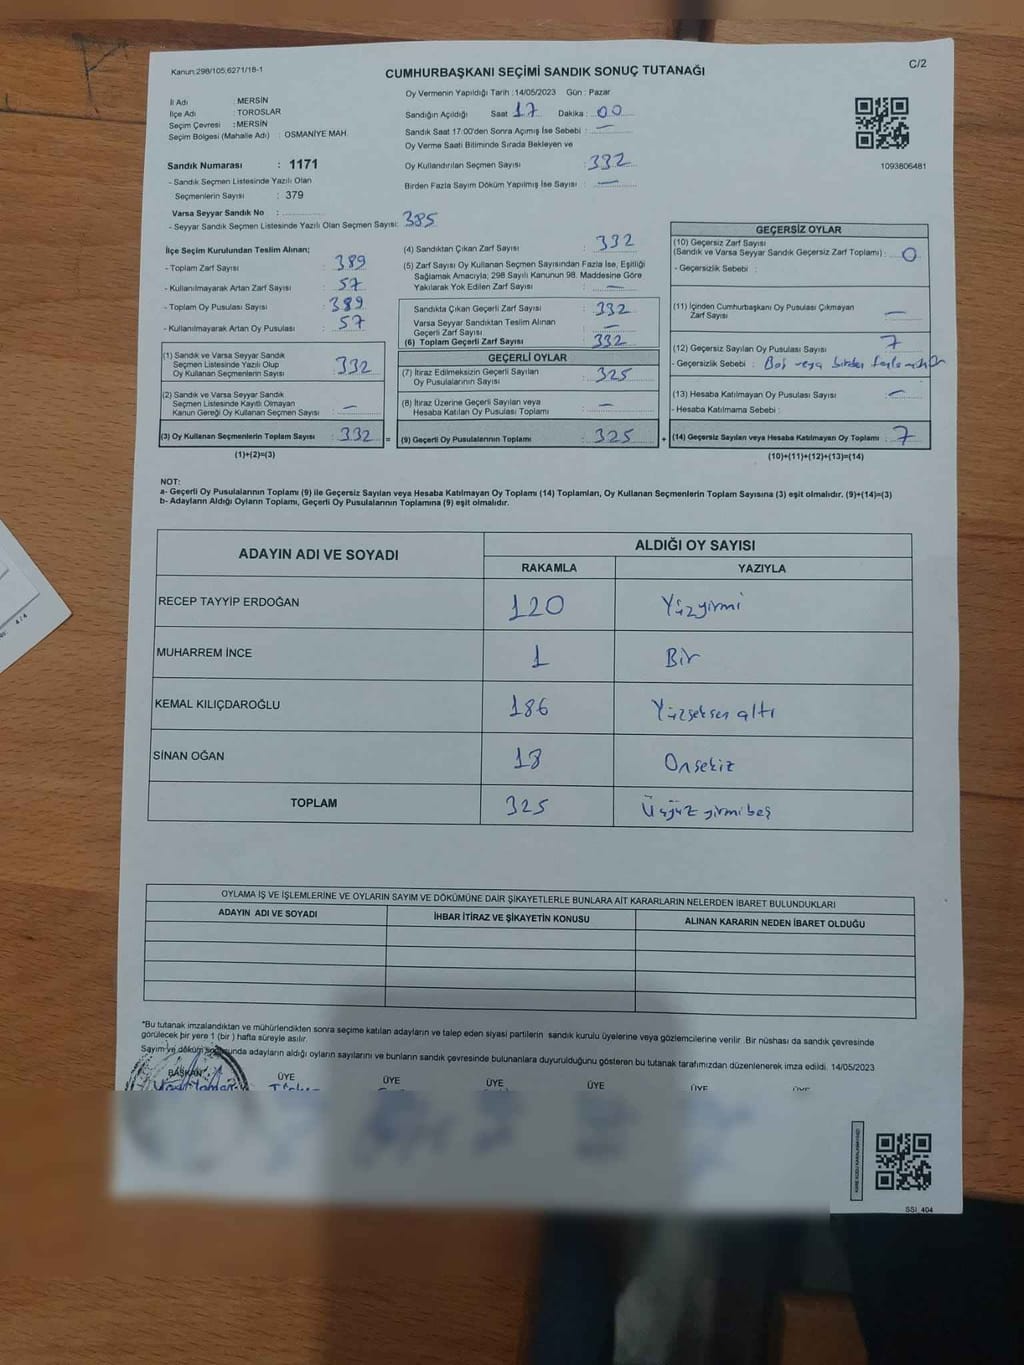 Kanun:298/105;6271/18-1
CUMHURBAŞKANI SEÇİMİ SANDIK SONUÇ TUTANAĞI
C/2
İl Adı : MERSİN
İlçe Adı : TOROSLAR
Seçim Çevresi : MERSİN
Seçim Bölgesi (Mahalle Adı) : OSMANİYE MAH.
Sandık Numarası : 1171
- Sandık Seçmen Listesinde Yazılı Olan
Seçmenlerin Sayısı : 379
Varsa Seyyar Sandık No :
- Seyyar Sandık Seçmen Listesinde Yazılı Olan Seçmen Sayısı: 385
Oy Vermenin Yapıldığı Tarih :14/05/2023 Gün : Pazar
Sandığın Açıldığı Saat : 17 Dakika : 00
Sandık Saat 17:00'den Sonra Açımış İse Sebebi : —
Oy Verme Saati Bitiminde Sırada Bekleyen ve
Oy Kullandırılan Seçmen Sayısı : 332
Birden Fazla Sayım Döküm Yapılmış İse Sayısı : —
1093806481
İlçe Seçim Kurulundan Teslim Alınan;
- Toplam Zarf Sayısı : 389
- Kullanılmayarak Artan Zarf Sayısı : 57
- Toplam Oy Pusulası Sayısı : 389
- Kullanılmayarak Artan Oy Pusulası : 57
(1) Sandık ve Varsa Seyyar Sandık
Seçmen Listesinde Yazılı Olup
Oy Kullanan Seçmenlerin Sayısı : 332
(2) Sandık ve Varsa Seyyar Sandık
Seçmen Listesinde Kayıtlı Olmayan
Kanun Gereği Oy Kullanan Seçmen Sayısı : —
(3) Oy Kullanan Seçmenlerin Toplam Sayısı : 332 =
(1)+(2)=(3)
(4) Sandıktan Çıkan Zarf Sayısı : 332
(5) Zarf Sayısı Oy Kullanan Seçmen Sayısından Fazla İse, Eşitliği
Sağlamak Amacıyla; 298 Sayılı Kanunun 98. Maddesine Göre
Yakılarak Yok Edilen Zarf Sayısı : —
Sandıkta Çıkan Geçerli Zarf Sayısı : 332
Varsa Seyyar Sandıktan Teslim Alınan
Geçerli Zarf Sayısı : —
(6) Toplam Geçerli Zarf Sayısı : 332
GEÇERLİ OYLAR
(7) İtiraz Edilmeksizin Geçerli Sayılan
Oy Pusulalarının Sayısı : 325
(8) İtiraz Üzerine Geçerli Sayılan veya
Hesaba Katılan Oy Pusulası Toplamı : —
(9) Geçerli Oy Pusulalarının Toplamı : 325 +
GEÇERSİZ OYLAR
(10) Geçersiz Zarf Sayısı
(Sandık ve Varsa Seyyar Sandık Geçersiz Zarf Toplamı) : 0
- Geçersizlik Sebebi :
(11) İçinden Cumhurbaşkanı Oy Pusulası Çıkmayan
Zarf Sayısı : —
(12) Geçersiz Sayılan Oy Pusulası Sayısı : 7
- Geçersizlik Sebebi : Boş veya birden fazla
(13) Hesaba Katılmayan Oy Pusulası Sayısı : —
- Hesaba Katılmama Sebebi :
(14) Geçersiz Sayılan veya Hesaba Katılmayan Oy Toplamı : 7
(10)+(11)+(12)+(13)=(14)
NOT:
a- Geçerli Oy Pusulalarının Toplamı (9) ile Geçersiz Sayılan veya Hesaba Katılmayan Oy Toplamı (14) Toplamları, Oy Kullanan Seçmenlerin Toplam Sayısına (3) eşit olmalıdır. (9)+(14)=(3)
b- Adayların Aldığı Oyların Toplamı, Geçerli Oy Pusulalarının Toplamına (9) eşit olmalıdır.
ADAYIN ADI VE SOYADI ALDIĞI OY SAYISI
RAKAMLA YAZIYLA
RECEP TAYYİP ERDOĞAN 120 Yüzyirmi
MUHARREM İNCE 1 Bir
KEMAL KILIÇDAROĞLU 186 Yüzseksen altı
SİNAN OĞAN 18 Onsekiz
TOPLAM 325 Üçyüz yirmibeş
OYLAMA İŞ VE İŞLEMLERİNE VE OYLARIN SAYIM VE DÖKÜMÜNE DAİR ŞİKAYETLERLE BUNLARA AİT KARARLARIN NELERDEN İBARET BULUNDUKLARI
ADAYIN ADI VE SOYADI İHBAR İTİRAZ VE ŞİKAYETİN KONUSU ALINAN KARARIN NEDEN İBARET OLDUĞU
*Bu tutanak imzalandıktan ve mühürlendikten sonra seçime katılan adayların ve talep eden siyasi partilerin sandık kurulu üyelerine veya gözlemcilerine verilir .Bir nüshası da sandık çevresinde
görülecek bir yere 1 (bir ) hafta süreyle asılır.
Sayım ve döküm adayların aldığı oyların sayılarını ve bunların sandık çevresinde bulunanlara duyurulduğunu gösteren bu tutanak tarafımızdan düzenlenerek imza edildi. 14/05/2023
BAŞKAN ÜYE ÜYE ÜYE ÜYE ÜYE
SSİ_404
4 / 4